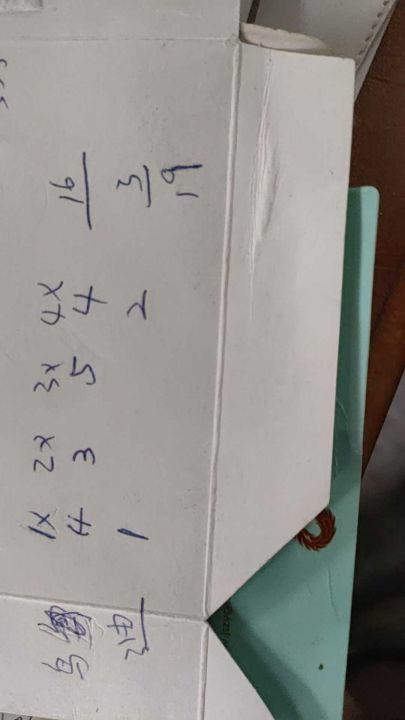 1x 2x 3x 4x
乌 4 3 5 4 16
油 1 2 3
19